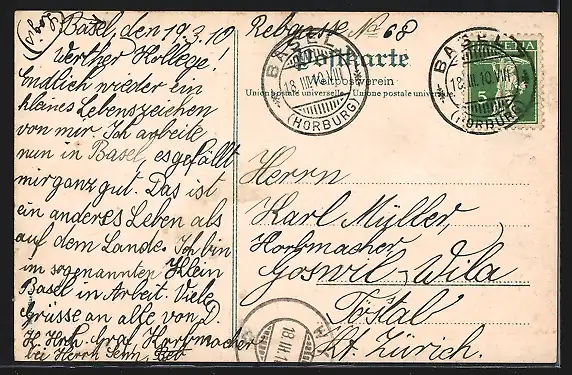 Basel, den 19.3.10
Werther Kollege!
Endlich wieder ein
kleines Lebenszeichen
von mir. Ich arbeite
nun in Basel, es gefällt
mir ganz gut. Das ist
ein anderes Leben als
auf dem Lande. Ich bin
im sogenannten Klein
Basel in Arbeit. Viele
Grüsse an alle von D.
H. Hch. Graf, Korbmacher
bei Herrn Senn,
Rebgasse No 68
Postkarte
Weltpostverein
Union postale universelle - Unione postale universale
BASEL
18.III.10.VIII
(HORBURG)
BASEL
18.III.10.VIII
(HORBURG)
HELVETIA
5
Herrn
Karl Müller,
Korbmacher
Goswil-Wila
Tösstal
Kt. Zürich.
18.III.1